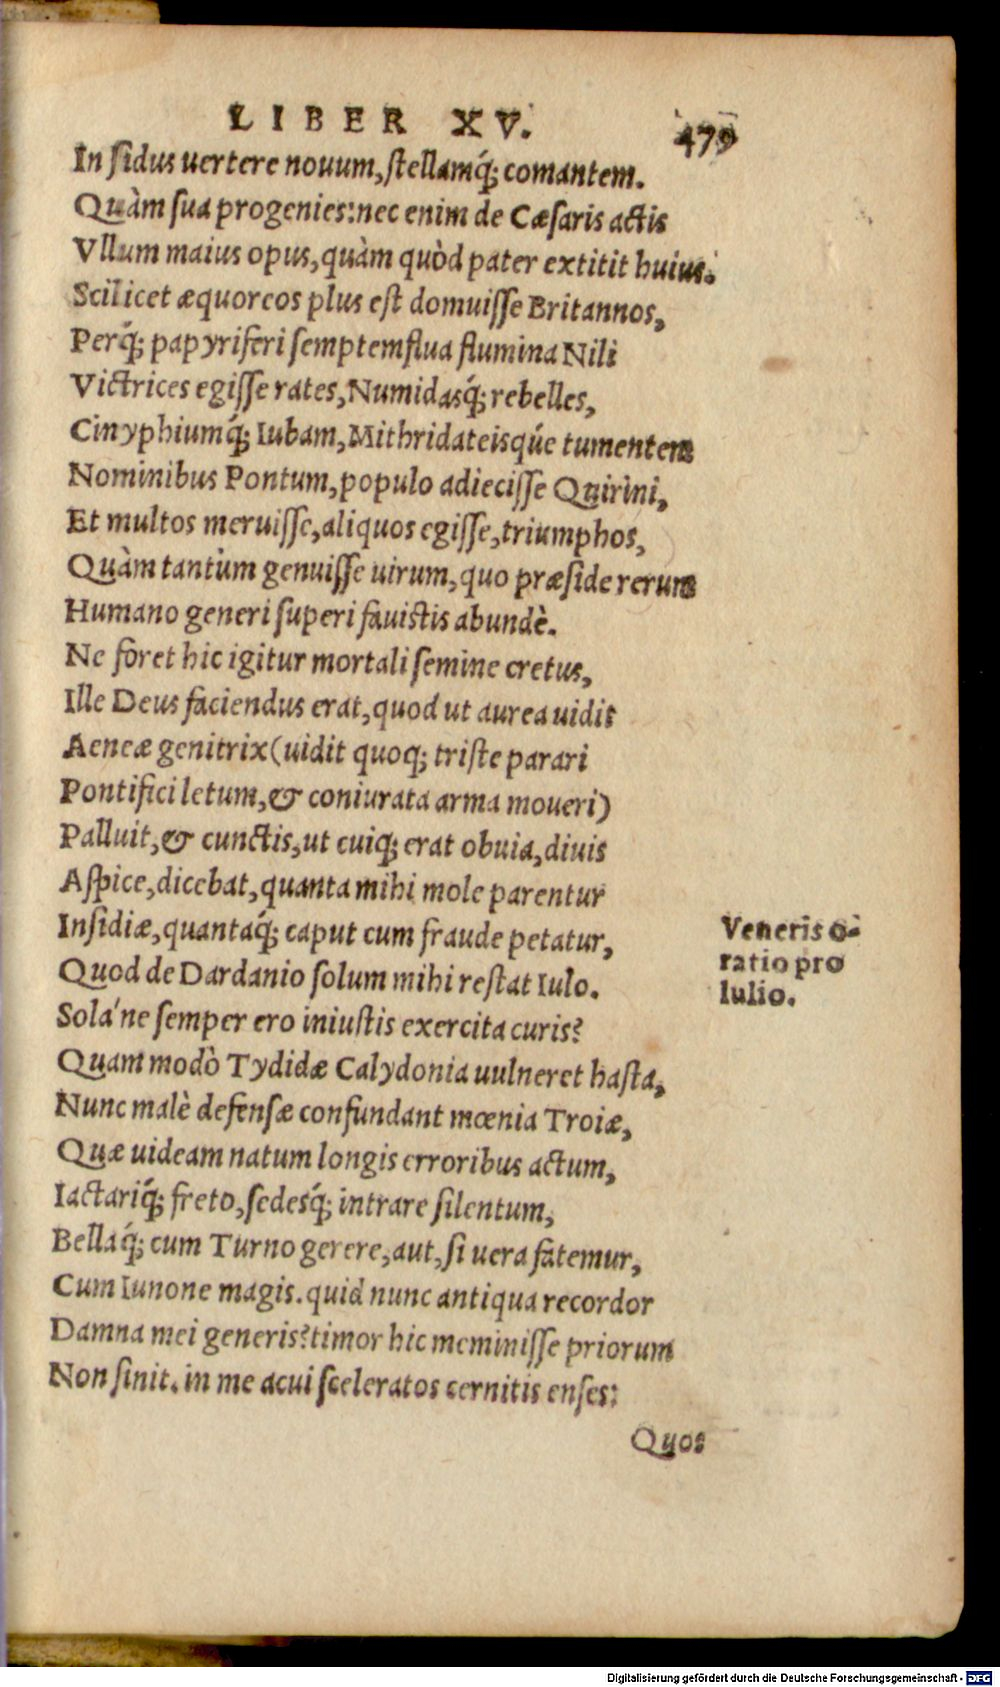 LIBER XV. 479
In sidus uertere nouum, stellamq́; comantem.
Quàm sua progenies: nec enim de Cæsaris actis
Vllum maius opus, quàm quòd pater extitit huius.
Scilicet æquoreos plus est domuisse Britannos,
Perq́; papyriferi semptemflua flumina Nili
Victrices egisse rates, Numidasq́; rebelles,
Cinyphiumq́; Iubam, Mithridateisqúe tumentem
Nominibus Pontum, populo adiecisse Quirini,
Et multos meruisse, aliquos egisse, triumphos,
Quàm tantùm genuisse uirum, quo præside rerum
Humano generi superi fauistis abundè.
Ne foret hic igitur mortali semine cretus,
Ille Deus faciendus erat, quod ut aurea uidit
Aeneæ genitrix (uidit quoq; triste parari
Pontifici letum, & coniurata arma moueri)
Palluit, & cunctis, ut cuiq; erat obuia, diuis
Aspice, dicebat, quanta mihi mole parentur
Insidiæ, quantaq́; caput cum fraude petatur,
Quod de Dardanio solum mihi restat Iulo.
Solá ne semper ero iniustis exercita curis?
Quam modò Tydidæ Calydonia uulneret hasta,
Nunc malè defensæ confundant mœnia Troiæ,
Quæ uideam natum longis erroribus actum,
Iactariq́; freto, sedesq́; intrare silentum,
Bellaq́; cum Turno gerere, aut, si uera fatemur,
Cum Iunone magis. quid nunc antiqua recordor
Damna mei generis? timor hic meminisse priorum
Non sinit. in me acui sceleratos cernitis enses:
Quos
Veneris o-
ratio pro
Iulio.
Digitalisierung gefördert durch die Deutsche Forschungsgemeinschaft - DFG